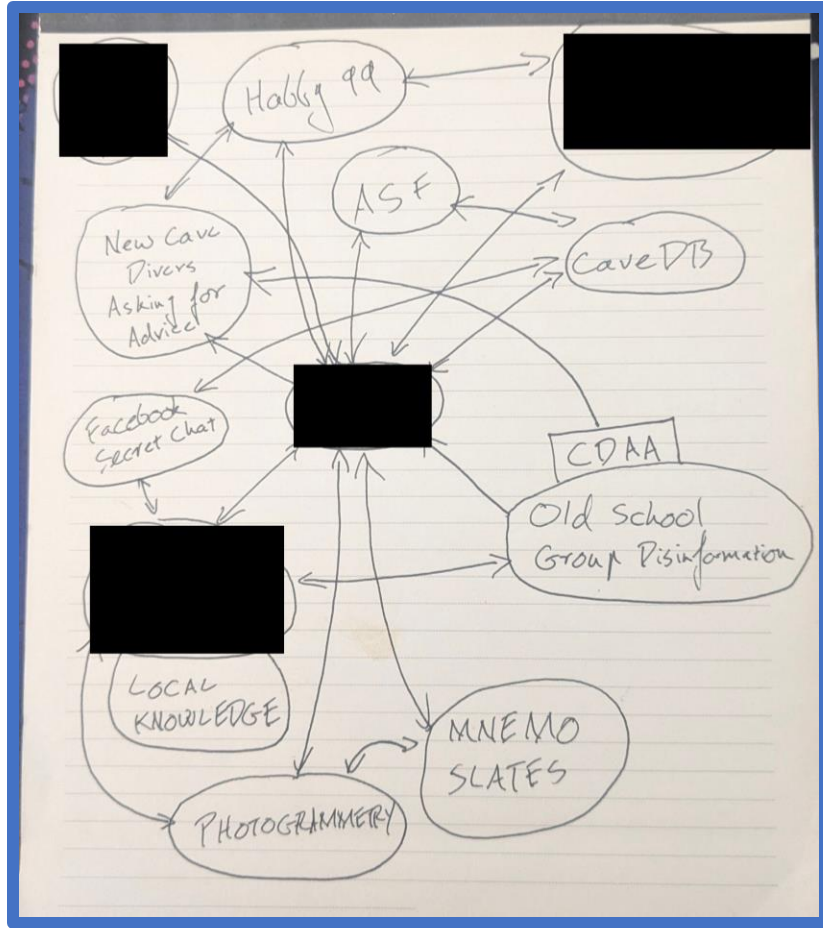 Habby 99
ASF
New Cave
Divers
Asking for
Advice
CaveDB
Facebook
Secret Chat
CDAA
Old School
Group Disinformation
LOCAL
KNOWLEDGE
MNEMO
SLATES
PHOTOGRAMMETRY